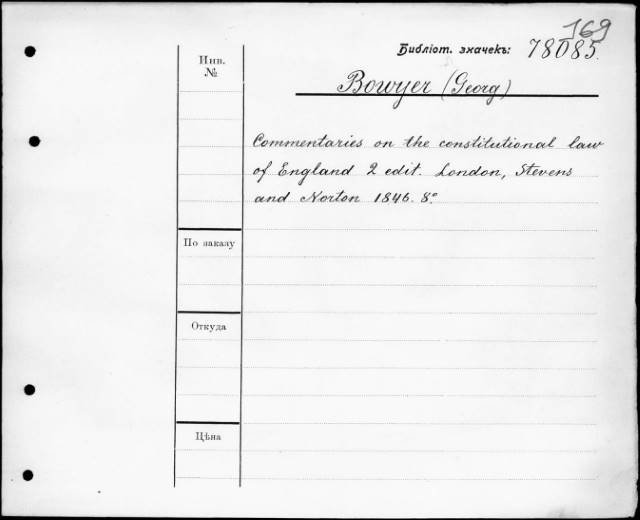 169
Библіот. значекъ: 78085.
Инв.
№
Bowyer (Georg)
Commentaries on the constitutional law
of England 2 edit. London, Stevens
and Norton 1846. 8°
По заказу
Откуда
Цѣна